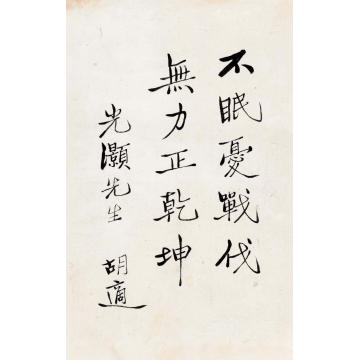 不眠憂戰伐
無力正乾坤
光灝先生
胡適